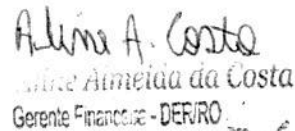 Aline A. Costa
Aline Almeida da Costa
Gerente Financeira - DER/RO